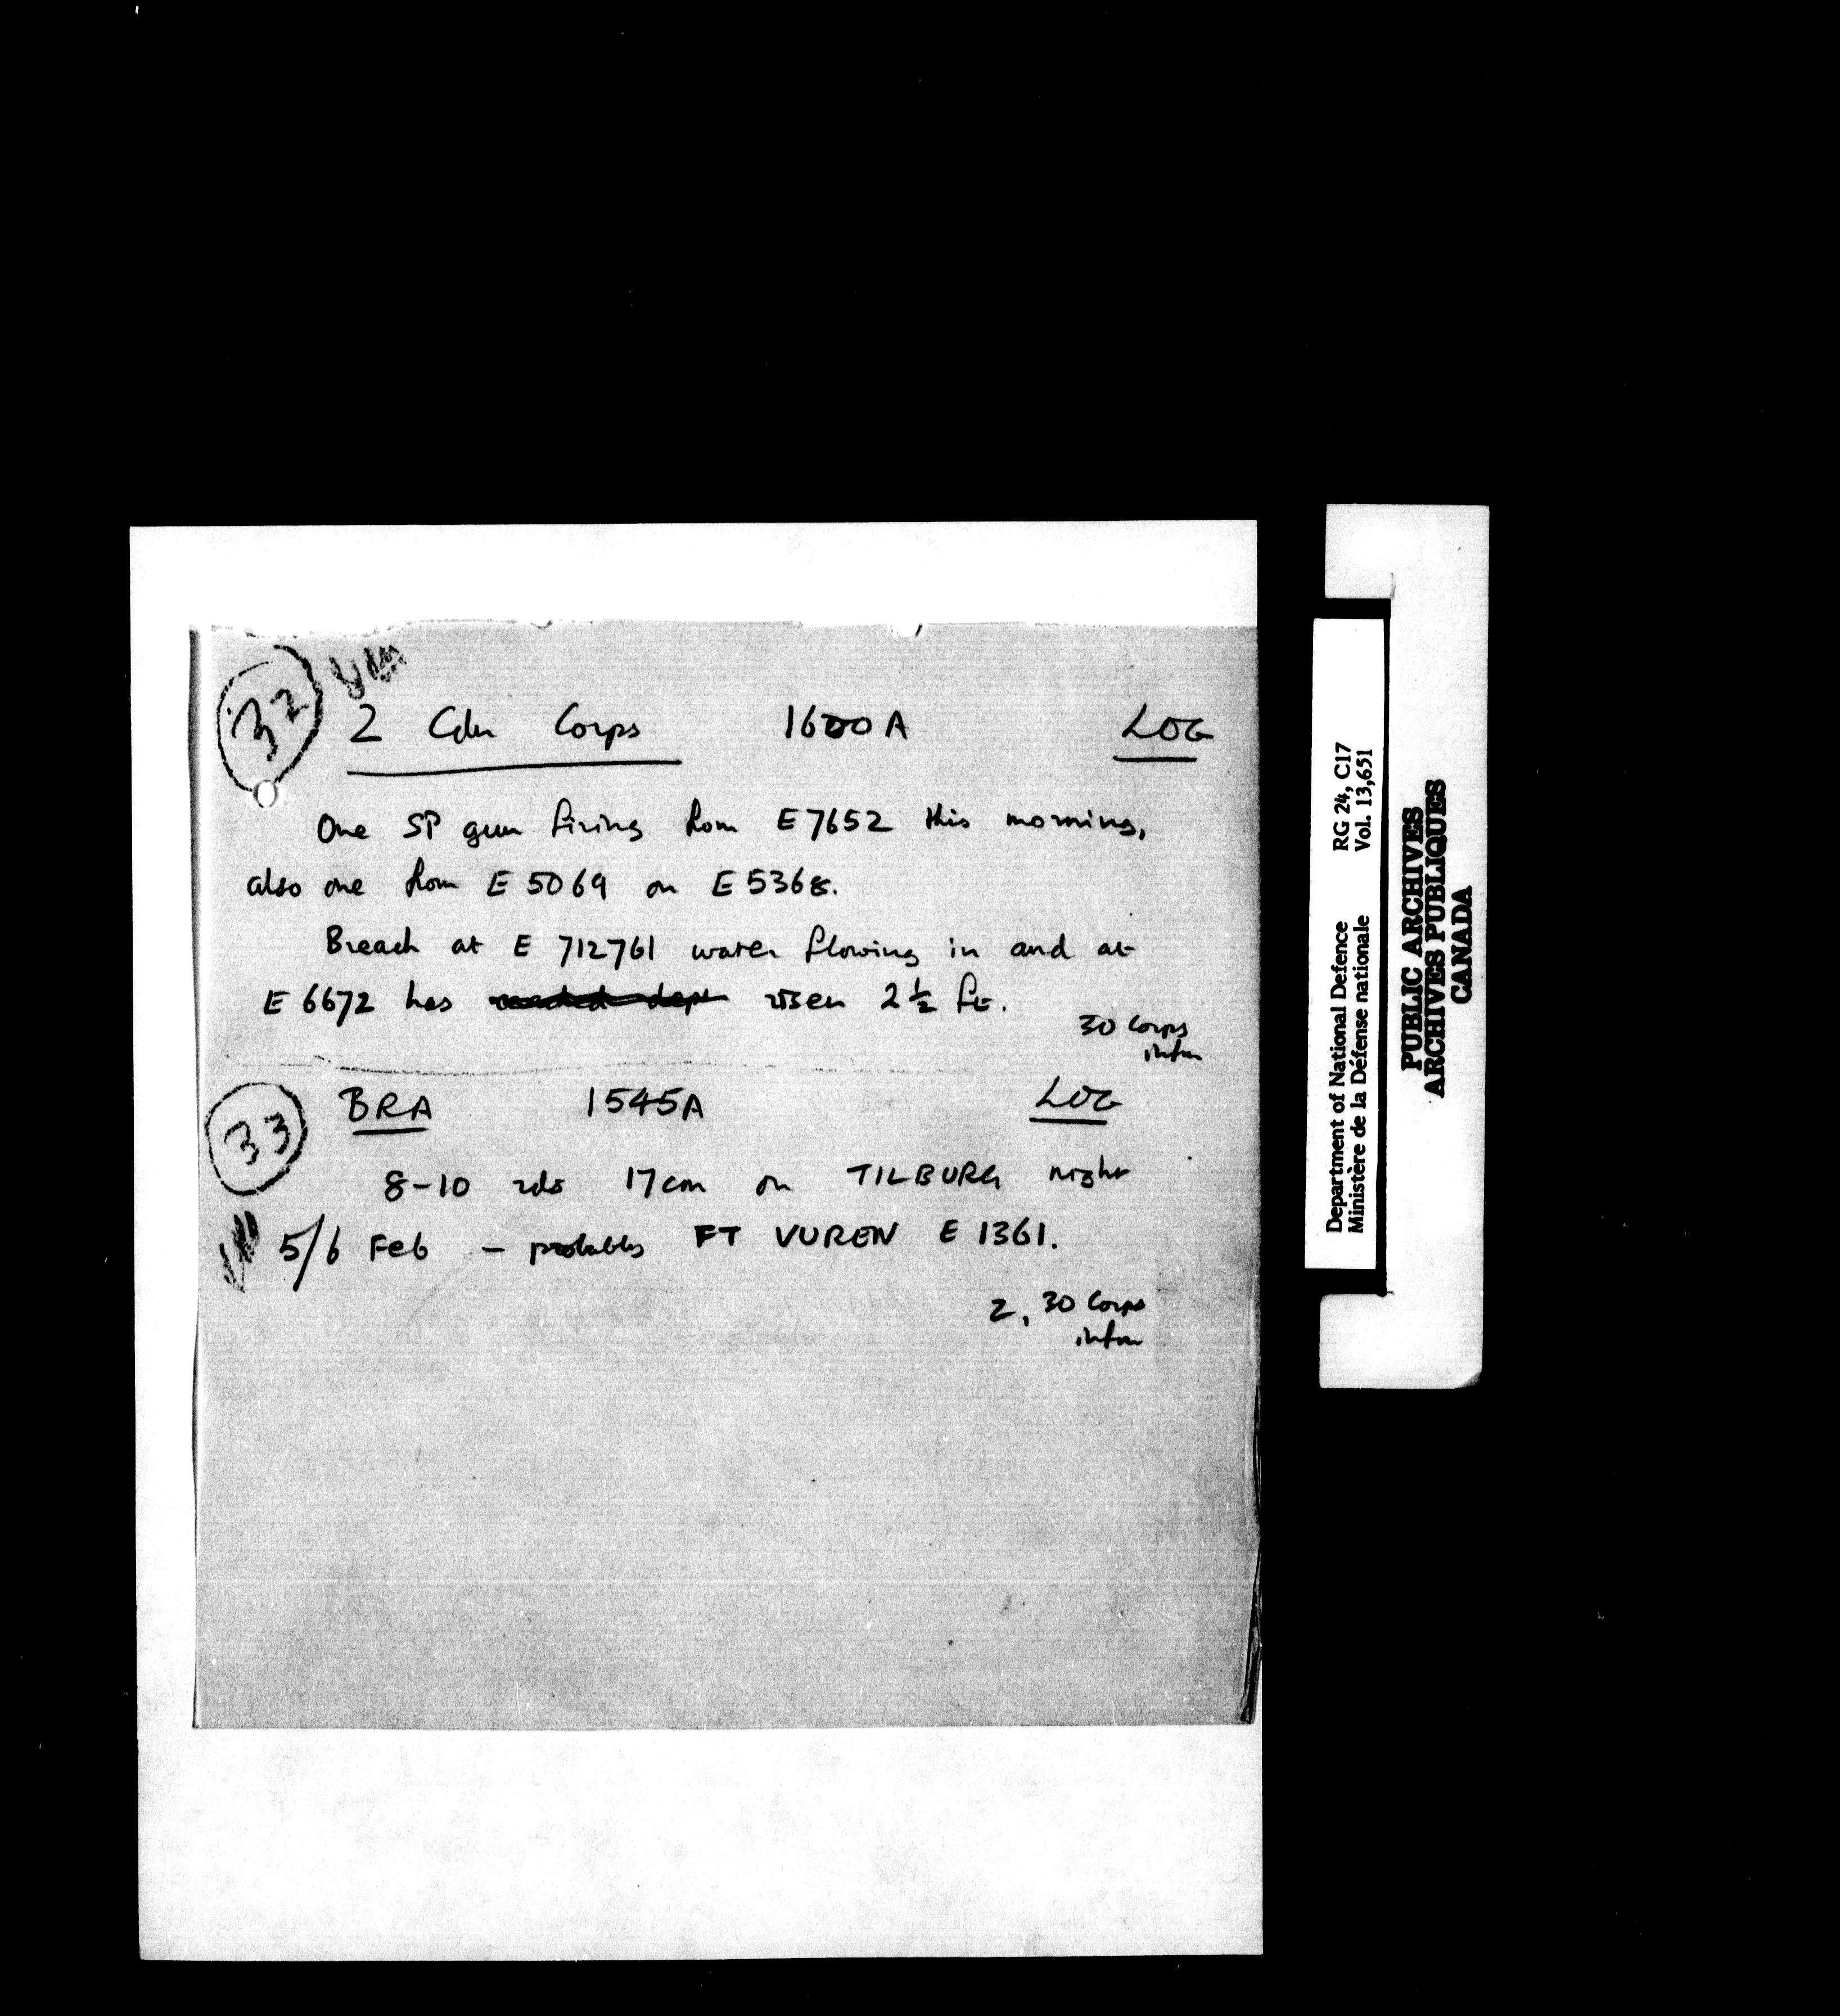 32
2 Cdn Corps 1600A LOG
One SP gun firing from E 7652 this morning,
also one from E 5069 on E 5368.
Breach at E 712761 water flowing in and at
E 6672 has reached dept risen 2½ ft.
30 Corps
infm
33
BRA 1545A LOG
8-10 rds 17cm on TILBURG night
5/6 Feb - probably FT VUREN E 1361.
2, 30 Corps
infm
Department of National Defence RG 24, C17
Ministère de la Défense nationale Vol. 13,651
PUBLIC ARCHIVES
ARCHIVES PUBLIQUES
CANADA